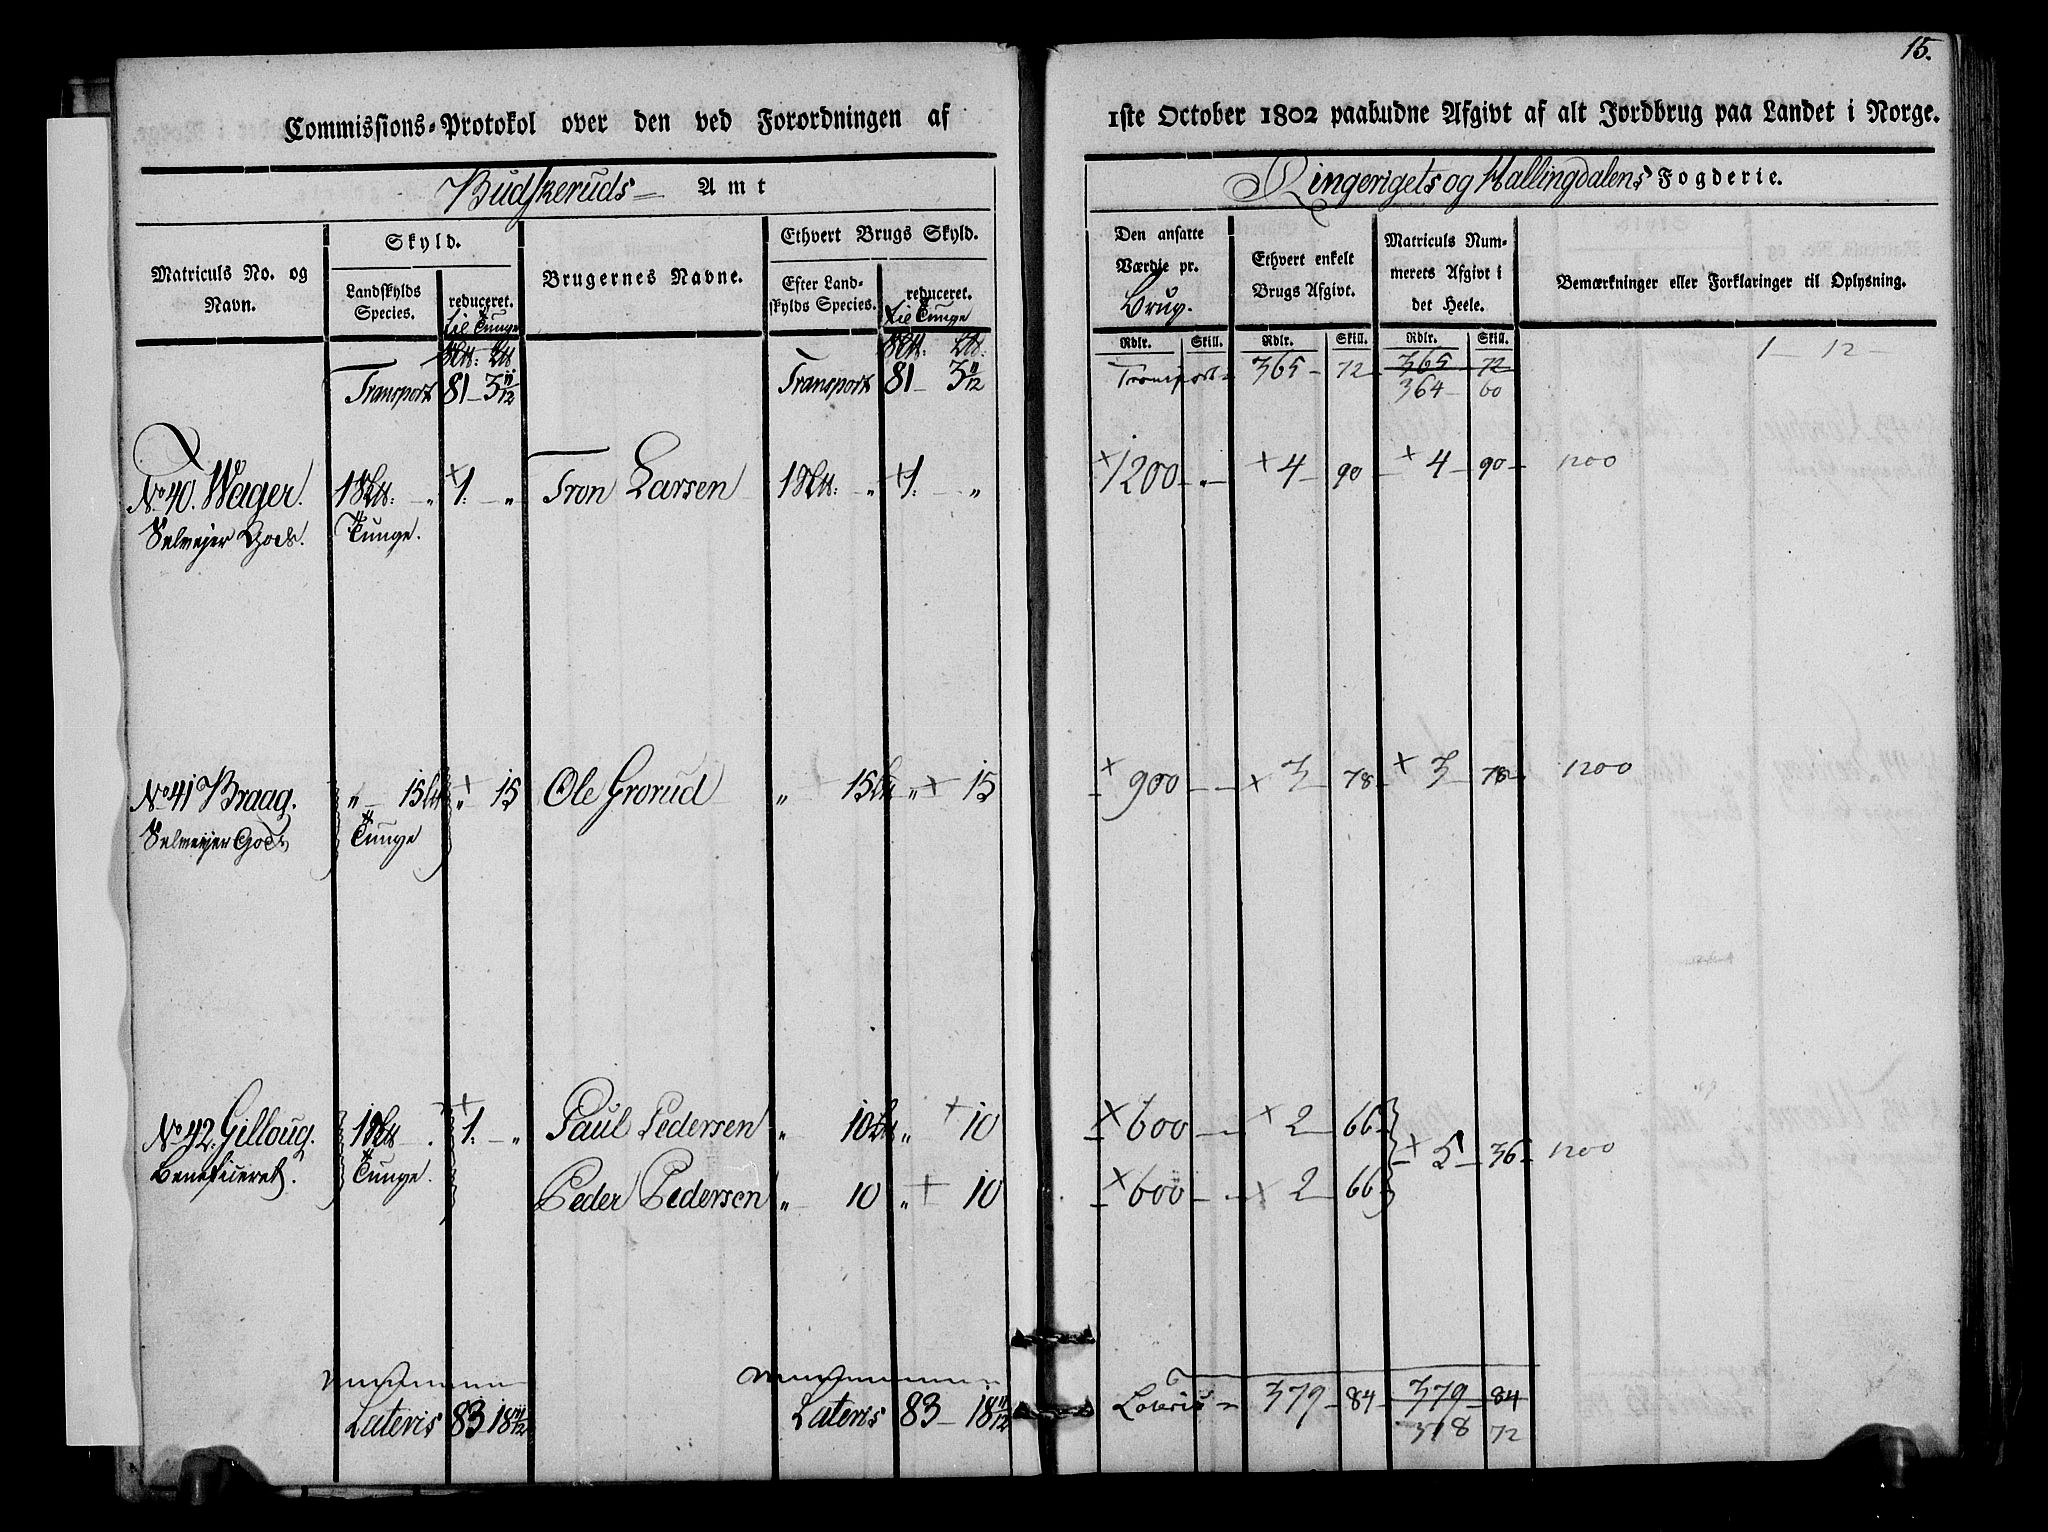 15.
Commissions-Protokol over den ved Forordningen af 1ste October 1802 paabudne Afgivt af alt Jordbrug paa Landet i Norge.
Budskeruds Amt
Ringerigets og Hallingdalens Fogderie.
Matriculs No. og Navn.
Skyld.
Landskylds Species.
reduceret. til Tunge
Brugernes Navne.
Ethvert Brugs Skyld.
Efter Landskylds Species.
reduceret. til Tunge
Den ansatte Værdie pr. Brug.
Ethvert enkelt Brugs Afgivt.
Matriculs Nummerets Afgivt i det Heele.
Bemærkninger eller Forklaringer til Oplysning.
Rdlr. Skill. Rdlr. Skill. Rdlr. Skill.
Transport 81 – 3 11/12 Transport 81 – 3 11/12 Transport 365 – 72 365 – 72 1 – 12 –
364 – 60
No 40. Wager. 1 „ + 1. – „ Tron Larsen 1 „ + 1. – „ + 1200 – „ – + 4 – 90 – + 4 – 90 – 1200
Selmejer Gods. Tunge.
No 41 Braag. „ – 15 „ + 15 Ole Grorud „ + 15 „ + 15 + 900 – – + 3 – 78 – + 3 – 78 – 1200
Selmeyer Gods Tunge
No 42. Gilloug. 1 „ + 1. – „ Paul Pedersen „ 10 „ + 10 + 600 – – + 2 – 66 + 5 – 36 – 1200
Beneficeret. Tunge.
Peder Pedersen „ – 10 „ + 10 + 600 – – + 2 – 66
Lateris 83 – 18 11/12 Lateris 83 – 18 11/12 Lateris 379 – 84 379 – 84
378 72